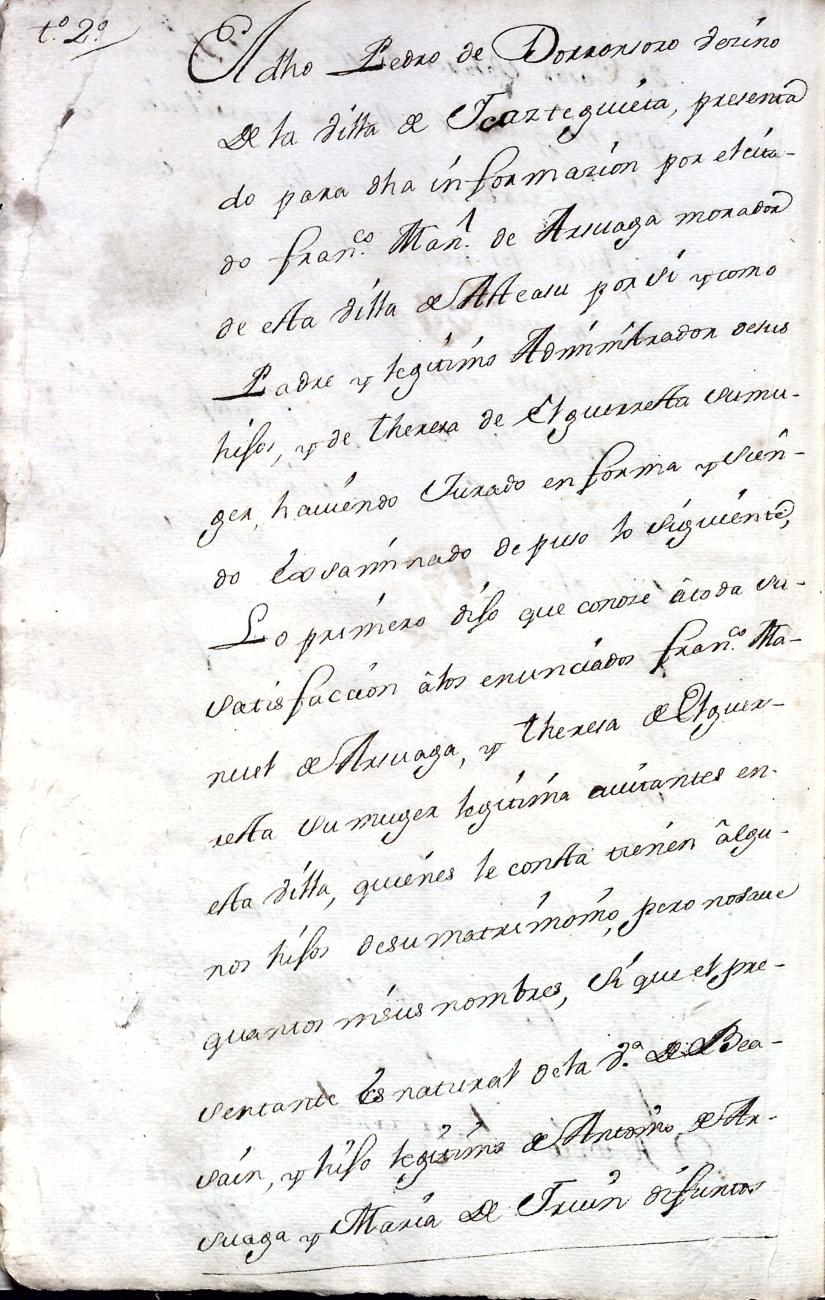 t.º 2.º
El dho Pedro de Dorronsoro vezino
de la villa de Icazteguieta, presenta
do para dha informazion por el cita-
do fran.co Man.l de Arsuaga morador
de esta villa de Atteasu por si y como
Padre y legitimo Administrador de sus
hijos, y de Theresa de Elguerresta su mu-
ger, haviendo Jurado en forma y sien-
do Exsaminado depuso lo siguiente,
Lo primero dijo que conoze â toda su-
satisfaccion â los enunciados fran.co Ma-
nuel de Arsuaga, y Theresa de Elguer-
resta su muger legitima avitantes en-
esta villa, quienes le consta tienen âlgu-
nos hijos de su matrimonio, pero no save
quantos ni sus nombres, Si que el pre-
sentante Es natural de la v.ª de Bea-
sain, y hijo legitimo de Antonio de Ar-
suaga y Maria de difuntos